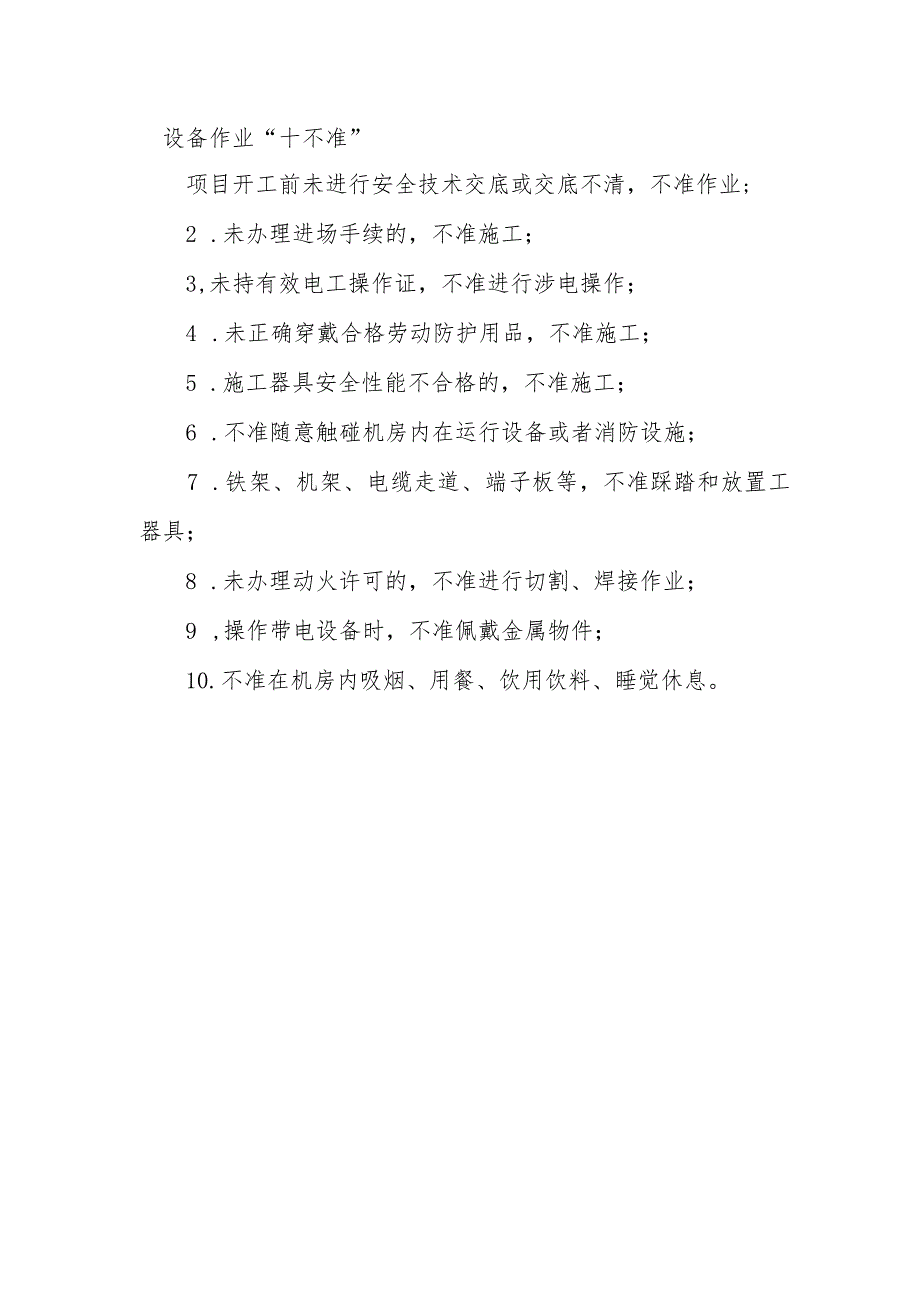 设备作业“十不准”
项目开工前未进行安全技术交底或交底不清，不准作业;
2 .未办理进场手续的，不准施工；
3,未持有效电工操作证，不准进行涉电操作；
4 .未正确穿戴合格劳动防护用品，不准施工；
5 .施工器具安全性能不合格的，不准施工；
6 .不准随意触碰机房内在运行设备或者消防设施；
7 .铁架、机架、电缆走道、端子板等，不准踩踏和放置工
器具；
8 .未办理动火许可的，不准进行切割、焊接作业；
9 ,操作带电设备时，不准佩戴金属物件；
10.不准在机房内吸烟、用餐、饮用饮料、睡觉休息。